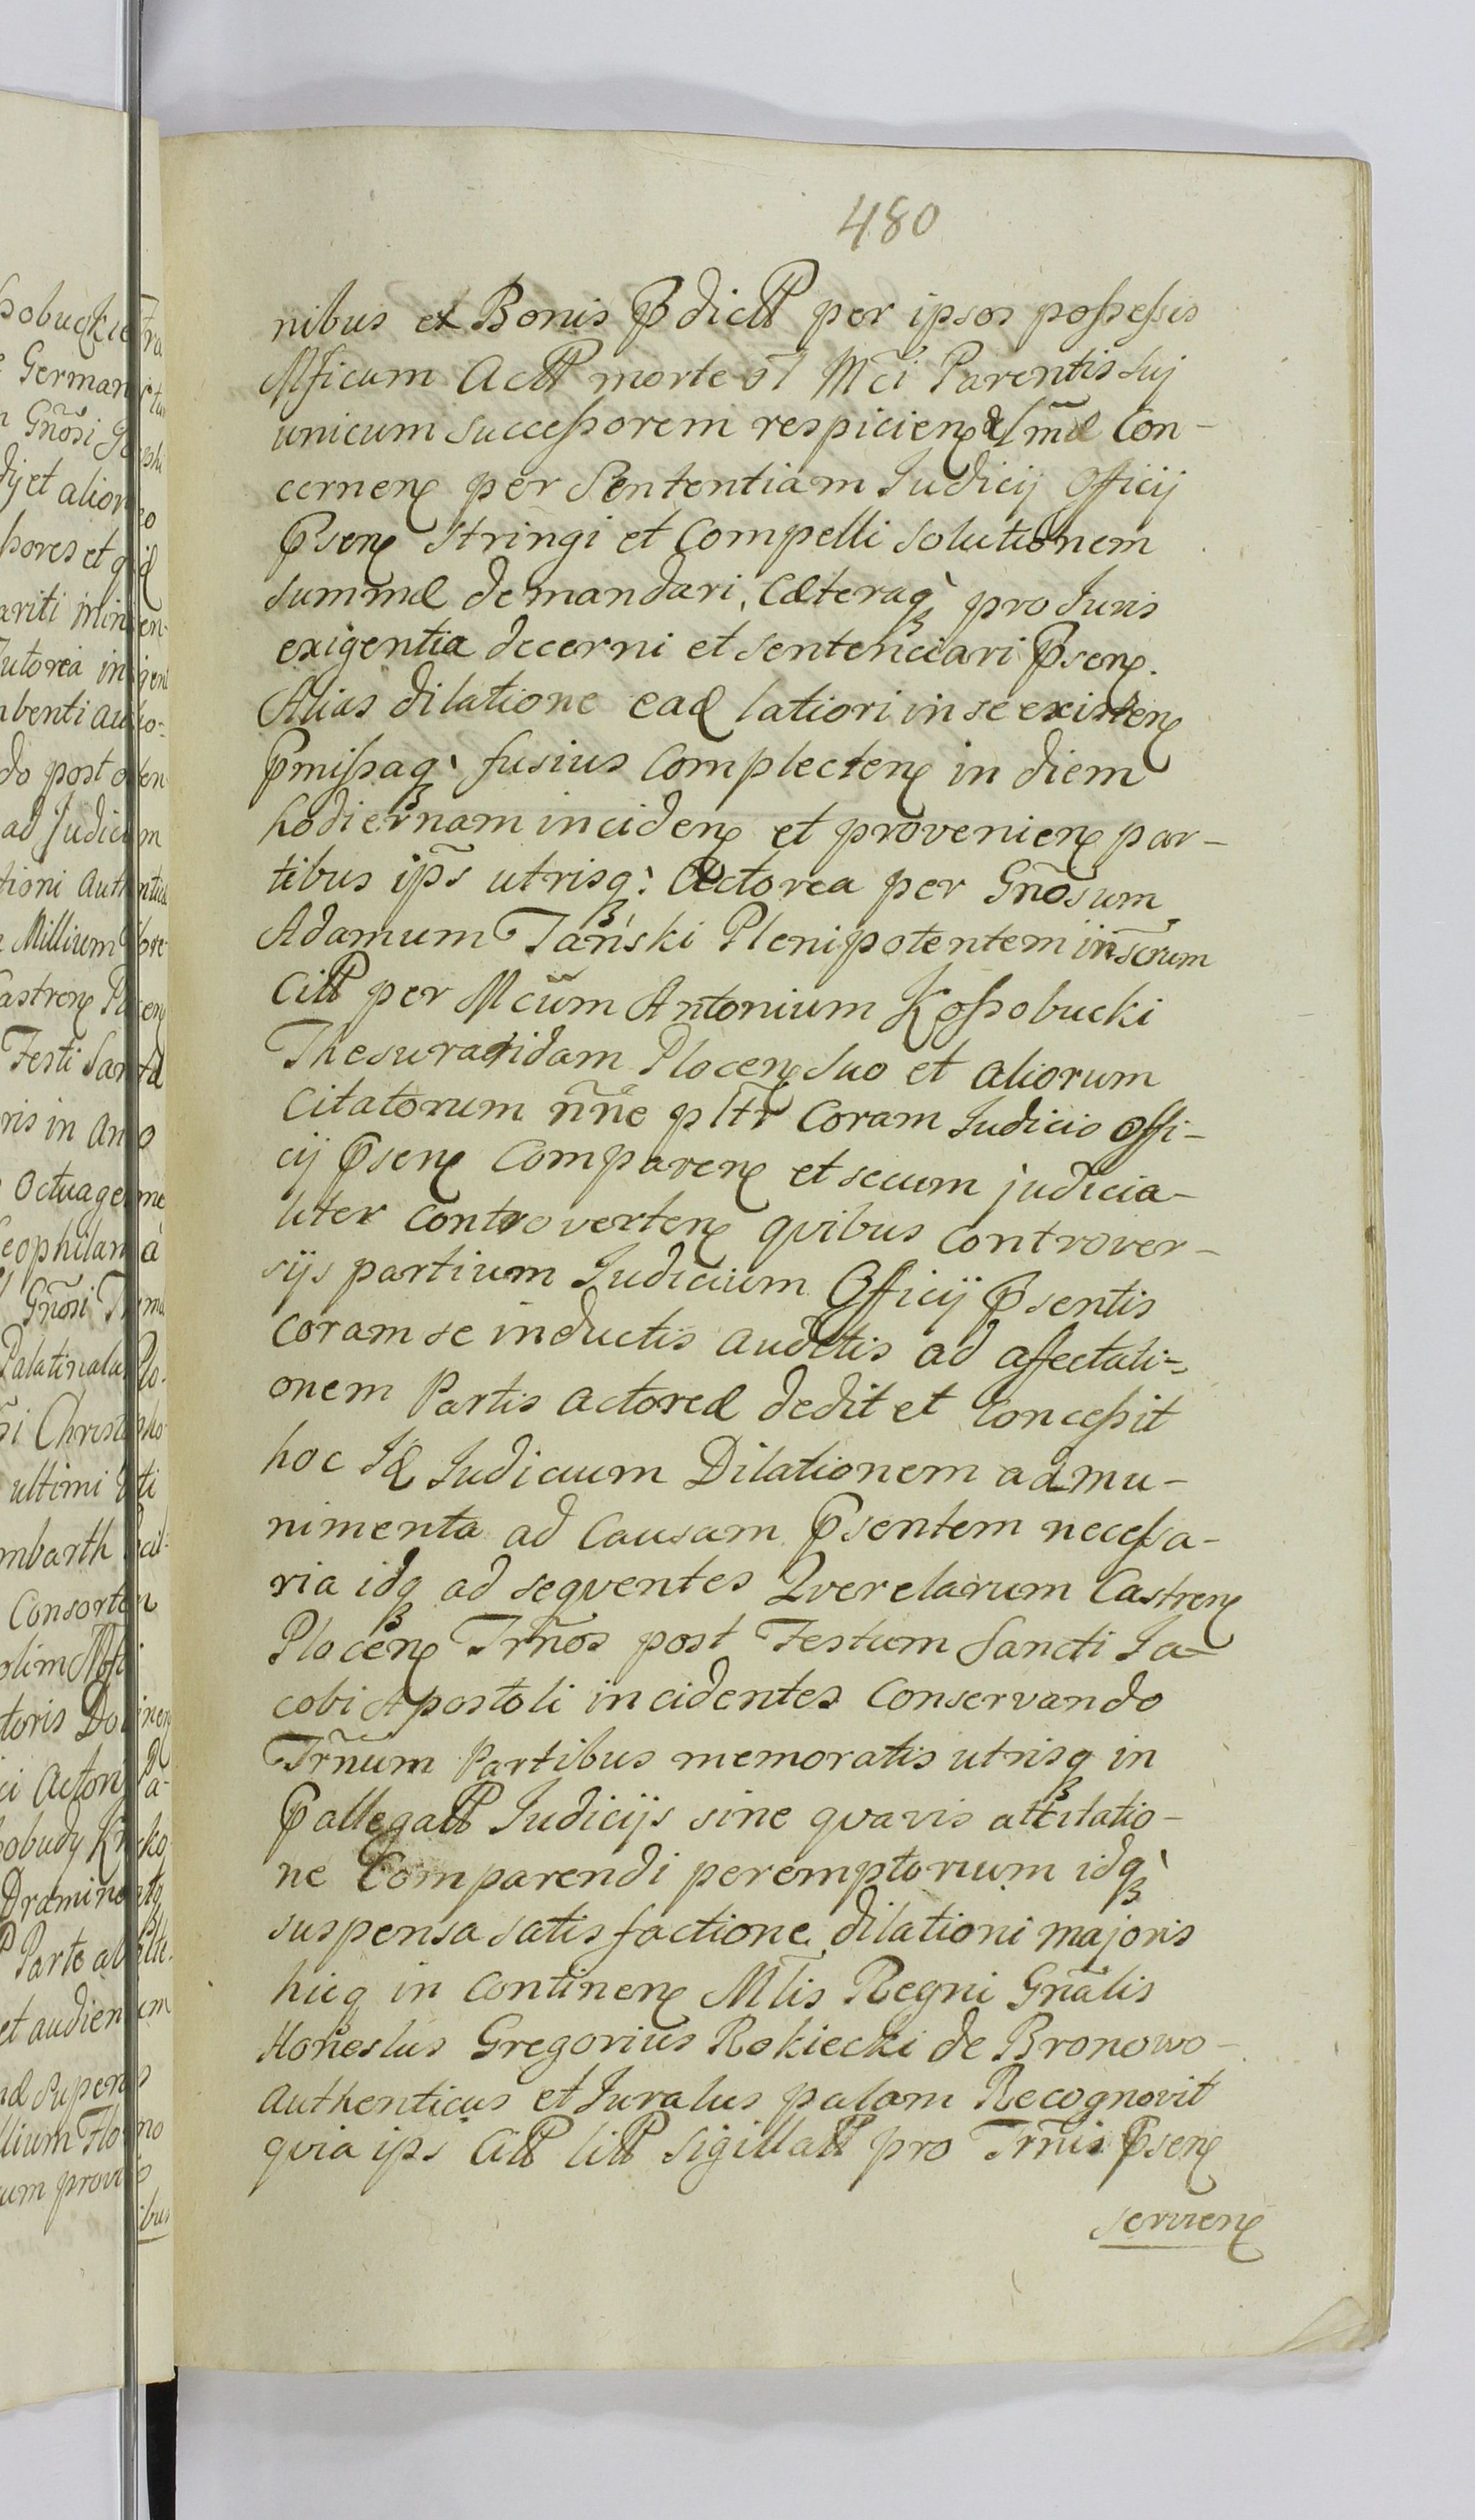 480
nibus et Bonis Pdictt per ipsos possessis
Mficum Actt morte ol Mci Parentis sui
unicum successorem respicien Con-
cernen per Sententiam Iudicij Officij
Psen stringi et compelli solutionem
summæ demandari, cæteraq pro Iuris
exigentia decerni et sentenciari Psen.
Alias dilatione ead latiori in se existen
Pmissaq fusius complecten in diem
hodiernam inciden et provenien par-
tibus ips utrisq: Actorea per Gnosum
Adamum Tański Plenipotentem in scrum
Citt per Mcum Antonium Kossobucki
Thesuraridam Plocen suo et aliorum
Citatorum nne pltr coram Iudicio Offi-
cij Psen comparen et secum judicia-
liter controverten qvibus controver-
sijs partium Iudicium Officij Psentis
coram se inductis auditis ad affectati-
onem Partis actoreæ dedit et concessit
hoc Id Iudicium Dilationem ad mu-
nimenta ad causam Psentem necessa-
ria idq ad seqventes Qverelarum Castren
Plocen Trnos post Festum Sancti Ia-
cobi Apostoli incidentes conservando
Trnum Partibus memoratis utrisq in
Pallegatt Iudicijs sine qvavis attitatio-
ne comparendi peremptorium idq
suspensa satisfactione dilationi majoris
hicq in continen Mtis Regni Gnalis
Honestus Gregorius Rokiecki de Bronowo
authenticus et Iuratus palam Recognovit
qvia ips Citt litt sigillatt pro Trnis Psen
servien